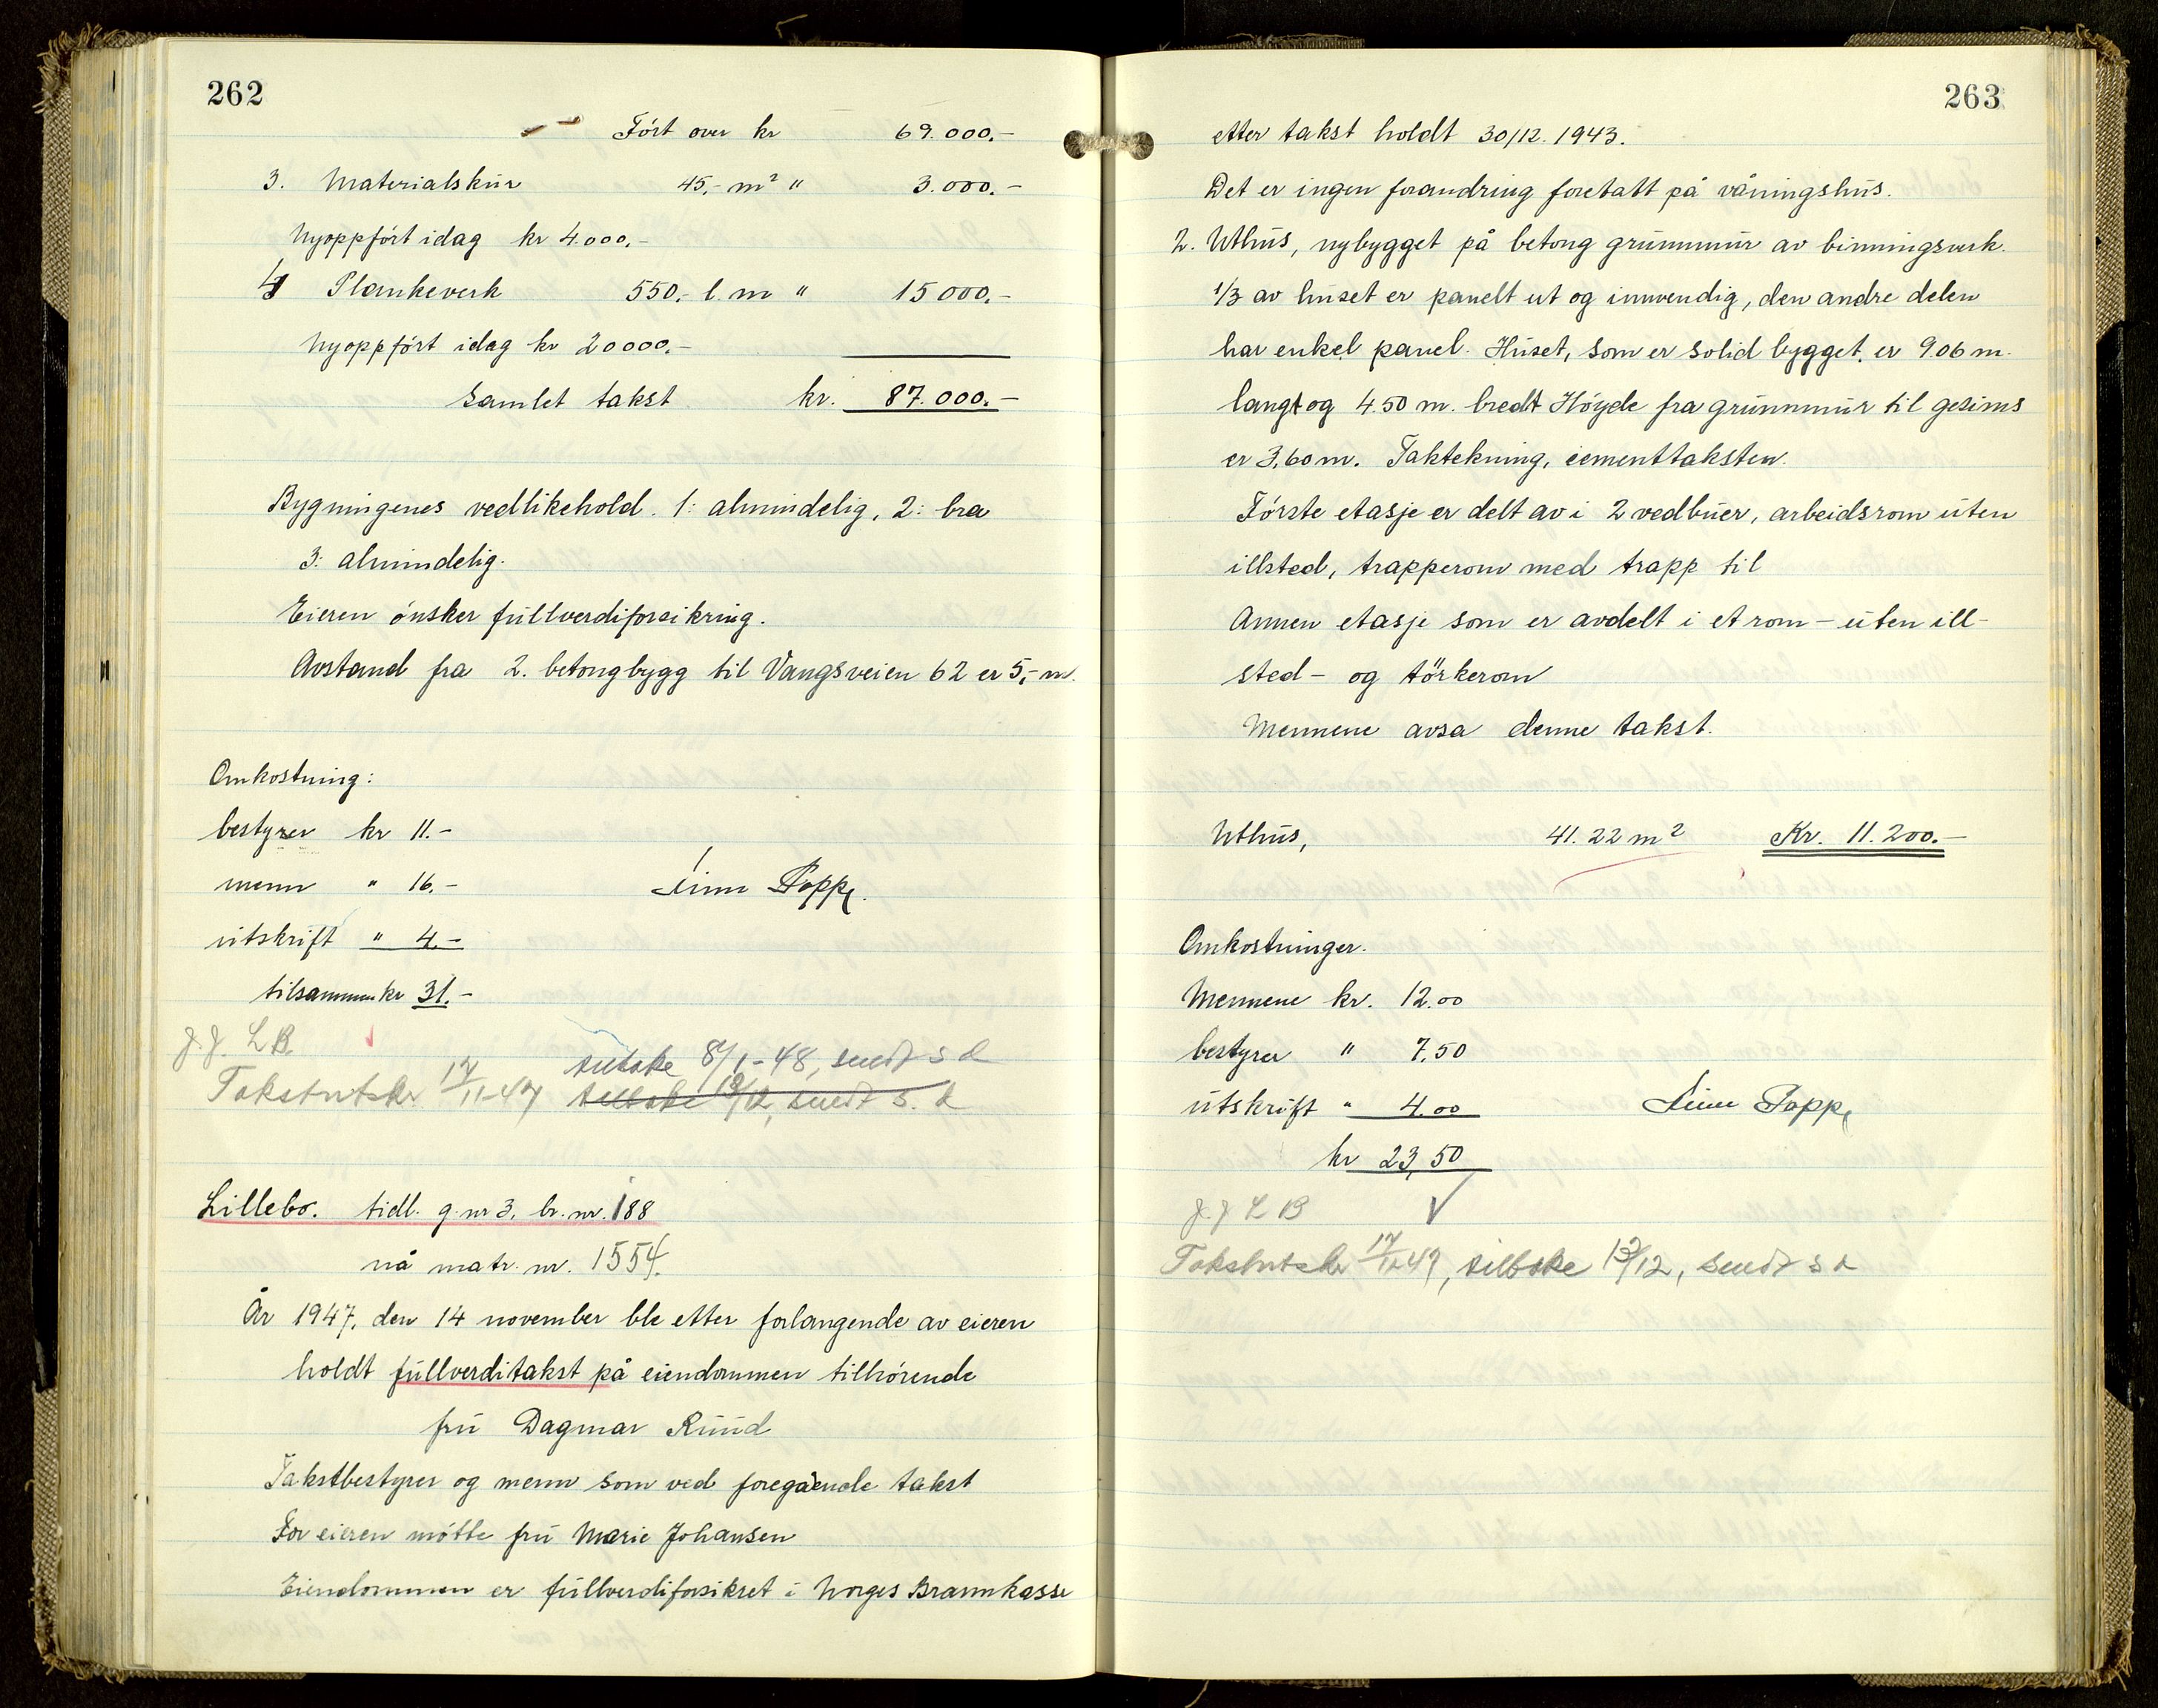 262
Ført over kr 69.000.-
3. Materialskur 45.- m² " 3.000.-
Nyoppført idag kr 4.000.-
4 Plankeverk 550.- l. m " 15000.-
Nyoppført idag kr 20000.-
Samlet takst kr. 87.000.-
Bygningenes vedlikehold. 1: almindelig, 2: bra
3: almindelig.
Eieren ønsker fullverdiforsikring.
Avstand fra 2. betongbygg til Vangsveien 62 er 5,- m.
Omkostning:
bestyrer kr 11.-
menn " 16.-
Finn Popp.
utskrift " 4.-
tilsammen kr 31.-
J.J. LB
tilbake 8/1-48, sendt s d
Takstutskr 17/11-47 tilbake 12/12, sendt s. d
Lillebo. tidl. g. nr 3, br. nr. 188
nå matr. nr. 1554.
År 1947, den 14 november ble etter forlangende av eieren
holdt fullverditakst på eiendommen tilhørende
fru Dagmar Ruud
Takstbestyrer og menn som ved foregående takst
For eieren møtte fru Marie Johansen
Eiendommen er fullverdiforsikret i Norges Brannkasse
263
etter takst holdt 30/12. 1943.
Det er ingen forandring foretatt på våningshus.
2. Uthus, nybygget på betong grunnmur av binningsverk.
1/3 av huset er panelt ut og innvendig, den andre delen
har enkel panel. Huset, som er solid bygget, er 9.06 m.
langt og 4.50 m. bredt Høyde fra grunnmur til gesims
er 3,60 m. Taktekning, cementtaksten.
Første etasje er delt av i 2 vedbuer, arbeidsrom uten
illsted, trapperom med trapp til
Annen etasje som er avdelt i et rom – uten ill-
sted – og törkerom
Mennene avsa denne takst.
Uthus, 41.22 m² Kr. 11.200.-
Omkostninger.
Mennene kr. 12.00
bestyrer " 7,50
utskrift " 4.00
Finn Popp.
kr 23,50
J.J LB
Takstutskr 17/12-47, tilbake 12/12, sendt s d